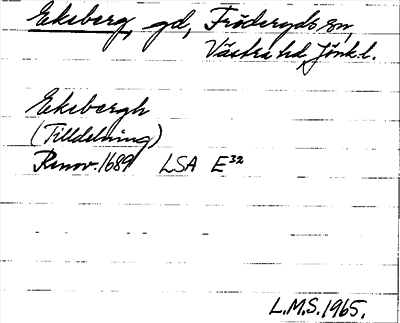 Ekeberg, gd, Fröderyds sn,
Västra hd, Jönk.l.
Ekebergh
(Tilldelning)
Renov. 1689 LSA E³²
L.M.S. 1965.